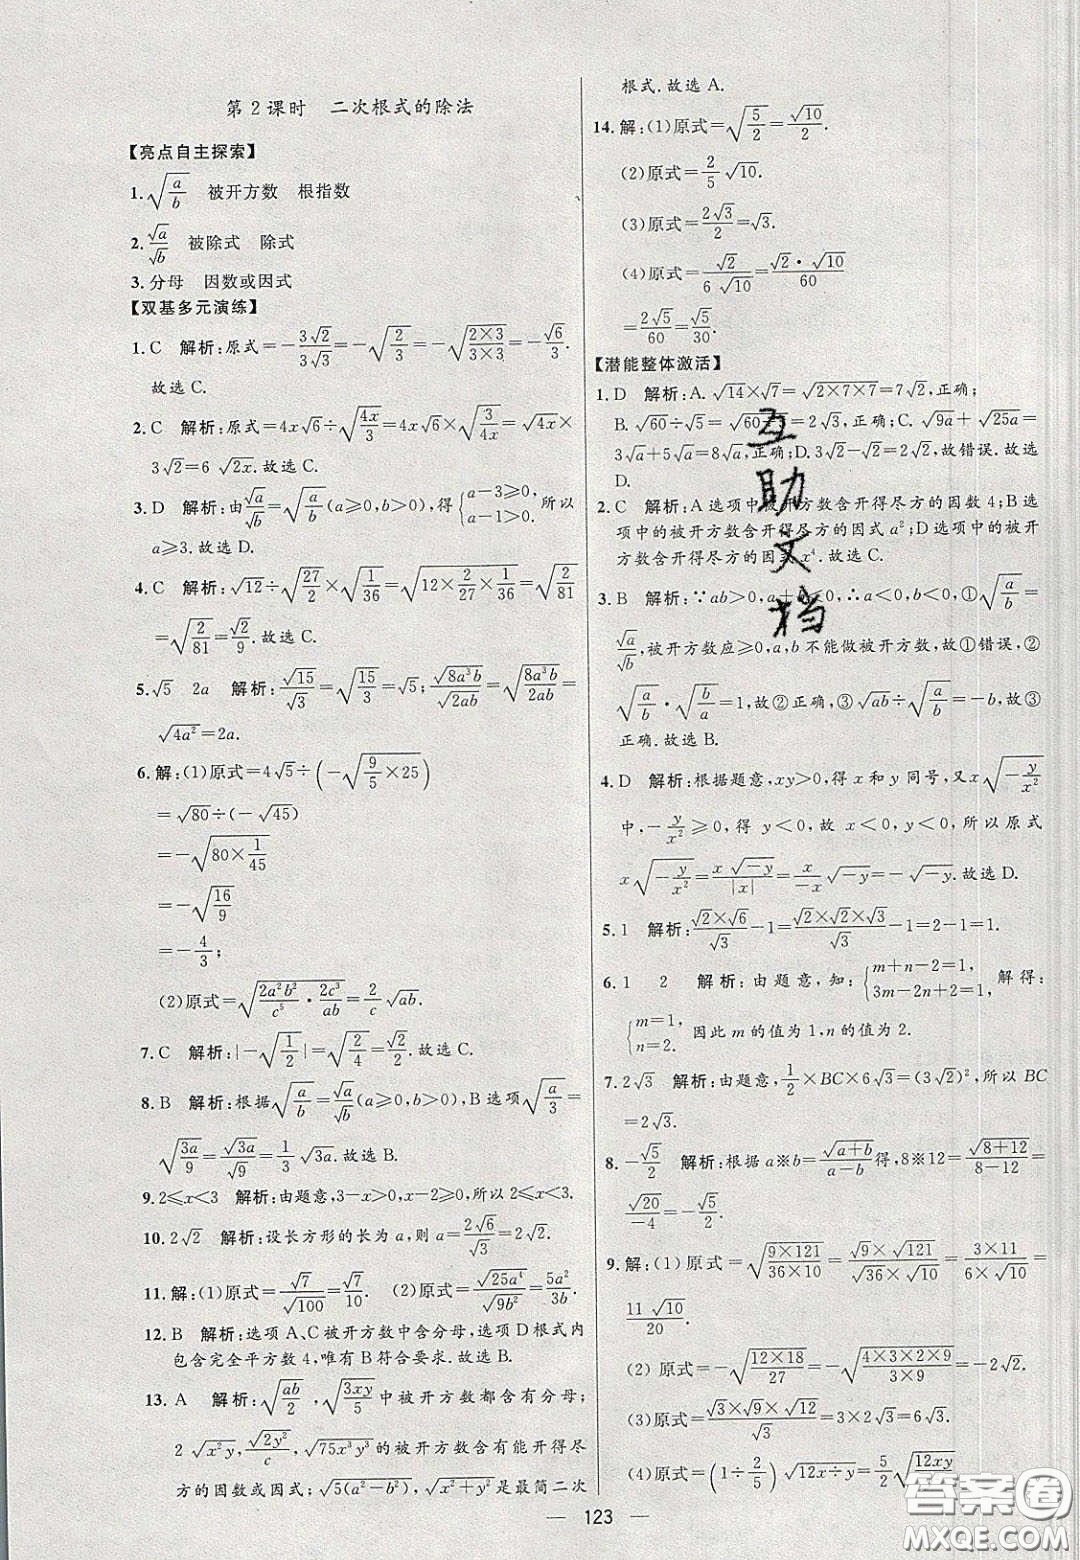 第2课时　二次根式的除法
【亮点自主探索】
1.√(a/b)　被开方数　根指数
2.√a/√b　被除式　除式
3.分母　因数或因式
【双基多元演练】
1.C　解析:原式=-3√2/3√3=-√(2/3)=-√((2×3)/(3×3))=-√6/3.
故选C.
2.C　解析:原式=4x√6÷√(4x/3)=4x√6×√(3/4x)=√4x×
3√2=6√2x.故选C.
3.D　解析:由√a/√b=√(a/b)(a≥0,b>0),得{a-3≥0, a-1>0,所以
a≥3.故选D.
4.C　解析:√12÷√(27/2)×√(1/36)=√(12×2/27×1/36)=√(2/81)
=√(2/81)=√2/9.故选C.
5.√5　2a　解析:√15/√3=√(15/3)=√5;√(8a³b)/√(2ab)=√(8a³b/2ab)=
√(4a²)=2a.
6.解:(1)原式=4√5÷(-√(9/5×25))
=√80÷(-√45)
=-√(80×1/45)
=-√(16/9)
=-4/3;
(2)原式=√(2a²b²/c⁵·2c³/ab)=2/c √ab.
7.C　解析:|-√(1/2)|=√(2/4)=√2/2.故选C.
8.B　解析:根据√(a/b)=√a/√b(a≥0,b>0),B选项√(a/3)=
√(3a/9)=√3a/√9=1/3 √3a.故选B.
9.2≤x<3　解析:由题意,3-x>0,x-2≥0,所以2≤x<3.
10.2√2　解析:设长方形的长为a,则a=2√6/√3=2√2.
11.解:(1)原式=√7/√100=√7/10.　(2)原式=√(25a⁴)/√(9b²)=5a²/3b.
12.B　解析:选项A、C被开方数中含分母,选项D根式内
包含完全平方数4,唯有B符合要求.故选B.
13.A　解析:√(ab/2),√(3xy/5)中被开方数都含有分母;
2√(x²y),√(2y²)/c,√(75x³y³)的被开方数含有能开得尽
方的因数或因式;√(5(a²-b²)),√(x²+y²)是最简二次
根式.故选A.
14.解:(1)原式=√(5/2)=√10/2.
(2)原式=2/5 √10.
(3)原式=2√3/2=√3.
(4)原式=√2/6√10=√2·√10/60
=2√5/60=√5/30.
【潜能整体激活】
1.D　解析:A.√14×√7=√(2×7×7)=7√2,正确;
B.√60÷√5=√(60÷5)=2√3,正确;C.√9a+√25a=
3√a+5√a=8√a,正确;D.3√2-√2=2√2,故错误.故选
D.
2.C　解析:A选项中被开方数含开得尽方的因数4;B选
项中的被开方数含开得尽方的因式a²;D选项中的被开
方数含开得尽方的因式x⁴.故选C.
3.B　解析:∵ab>0,a+b<0,∴a<0,b<0,①√(a/b)=
√a/√b,被开方数应≥0,a,b不能做被开方数,故①错误,②
√(a/b)·√(b/a)=1,故②正确,③√ab÷√(a/b)=-b,故③
正确.故选B.
4.D　解析:根据题意,xy>0,得x和y同号,又x√(-y/x²)
中,-y/x²≥0,得y<0,故x<0,y<0,所以原式
x√(-y/x²)=x√-y/|x|=x/-x √-y=-√-y.故选D.
5.1　解析:√2×√6/√3-1=√2×√2×√3/√3-1=2-1=1.
6.1　2　解析:由题意,知:{m+n-2=1, 3m-2n+2=1,解得:
{m=1, n=2.因此m的值为1,n的值为2.
7.2√3　解析:由题意,1/2×BC×6√3=(3√2)²,所以BC
=2√3.
8.-√5/2　解析:根据a※b=√(a+b)/(a-b)得,8※12=√(8+12)/(8-12)=
√20/-4=-√5/2.
9.解:(1)原式=√(9×121/36×10)=√9×√121/√36×√10=3×11/6×√10=
11√10/20.
(2)原式=-√(12×18/27)=-√(4×3×2×9/3×9)=-2√2
(3)原式=√3×√9×√12/√3=√3×6=6√3.
(4)原式=(1÷2/5)√(12x÷y)=5/2 √(12xy/y²)=
互助文档
答案圈
MXQE.COM
— 123 —